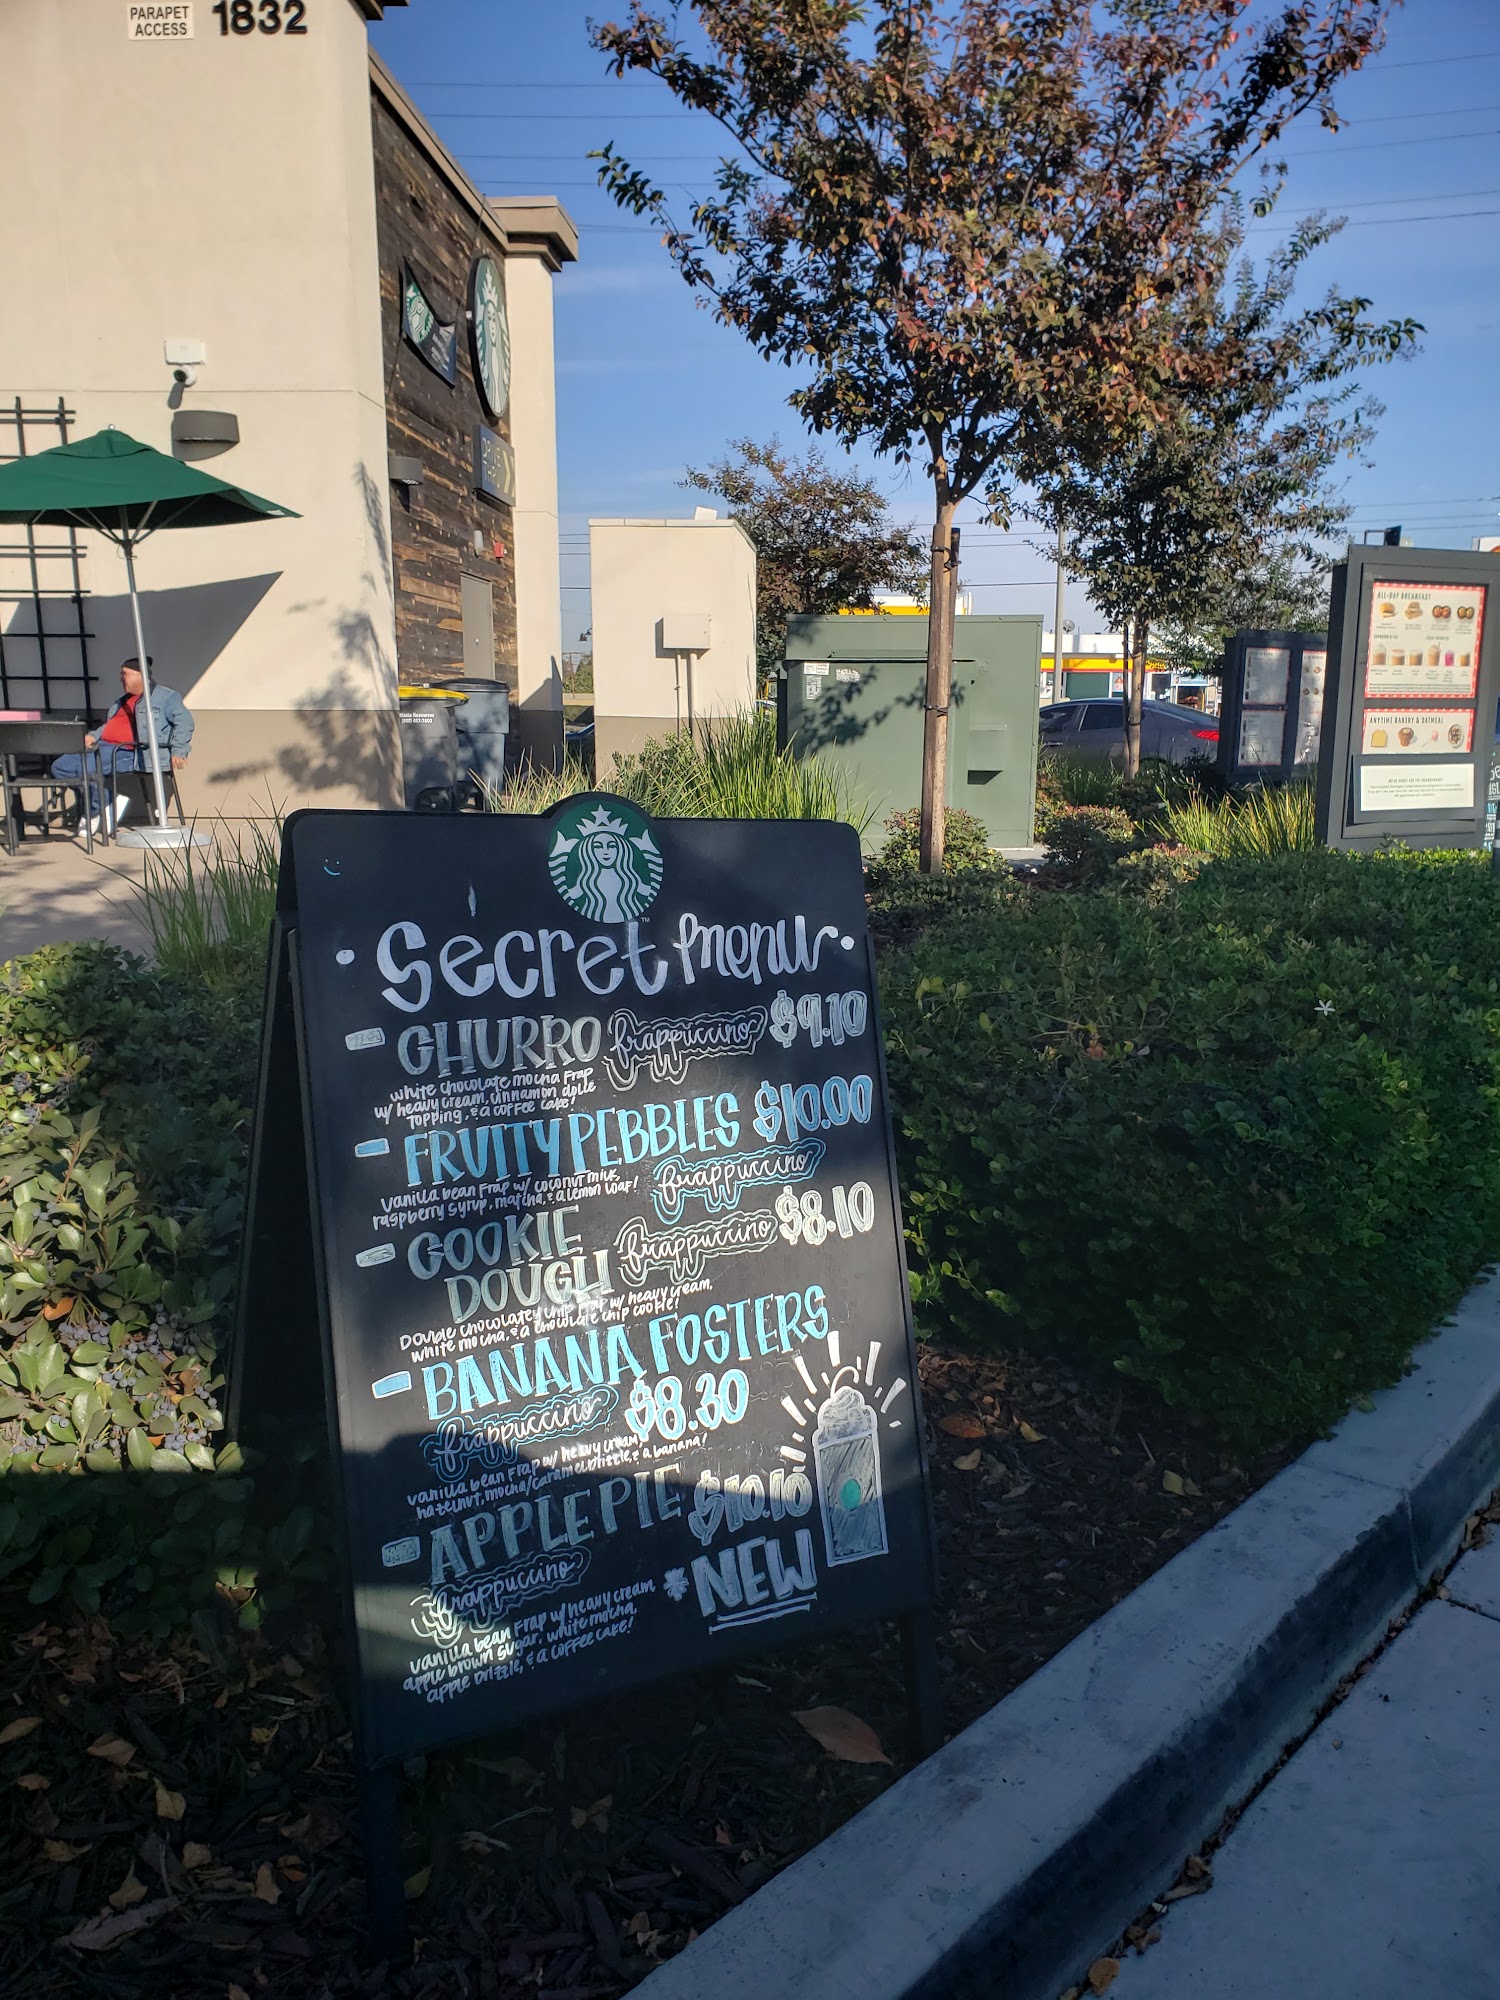 PARAPET
ACCESS
1832
Secret menu
CHURRO frappuccino $9.10
white chocolate mocha Frap
w/ heavy cream, cinnamon dolce
topping, & a coffee cake!
FRUITY PEBBLES $10.00
frappuccino
vanilla bean Frap w/ coconut milk
raspberry syrup, matcha, & a lemon loaf!
COOKIE
DOUGH frappuccino $8.10
Double chocolatey chip Frap w/ heavy cream,
white mocha, & a chocolate chip cookie!
BANANA FOSTERS
frappuccino $8.30
vanilla bean Frap w/ heavy cream,
hazelnut, mocha/caramel drizzle, & a banana!
APPLE PIE $10.10
frappuccino
*NEW
vanilla bean Frap w/ heavy cream
apple brown sugar, white mocha,
apple Drizzle, & a coffee cake!
TM
ALL-DAY BREAKFAST
ANYTIME BAKERY & OATMEAL